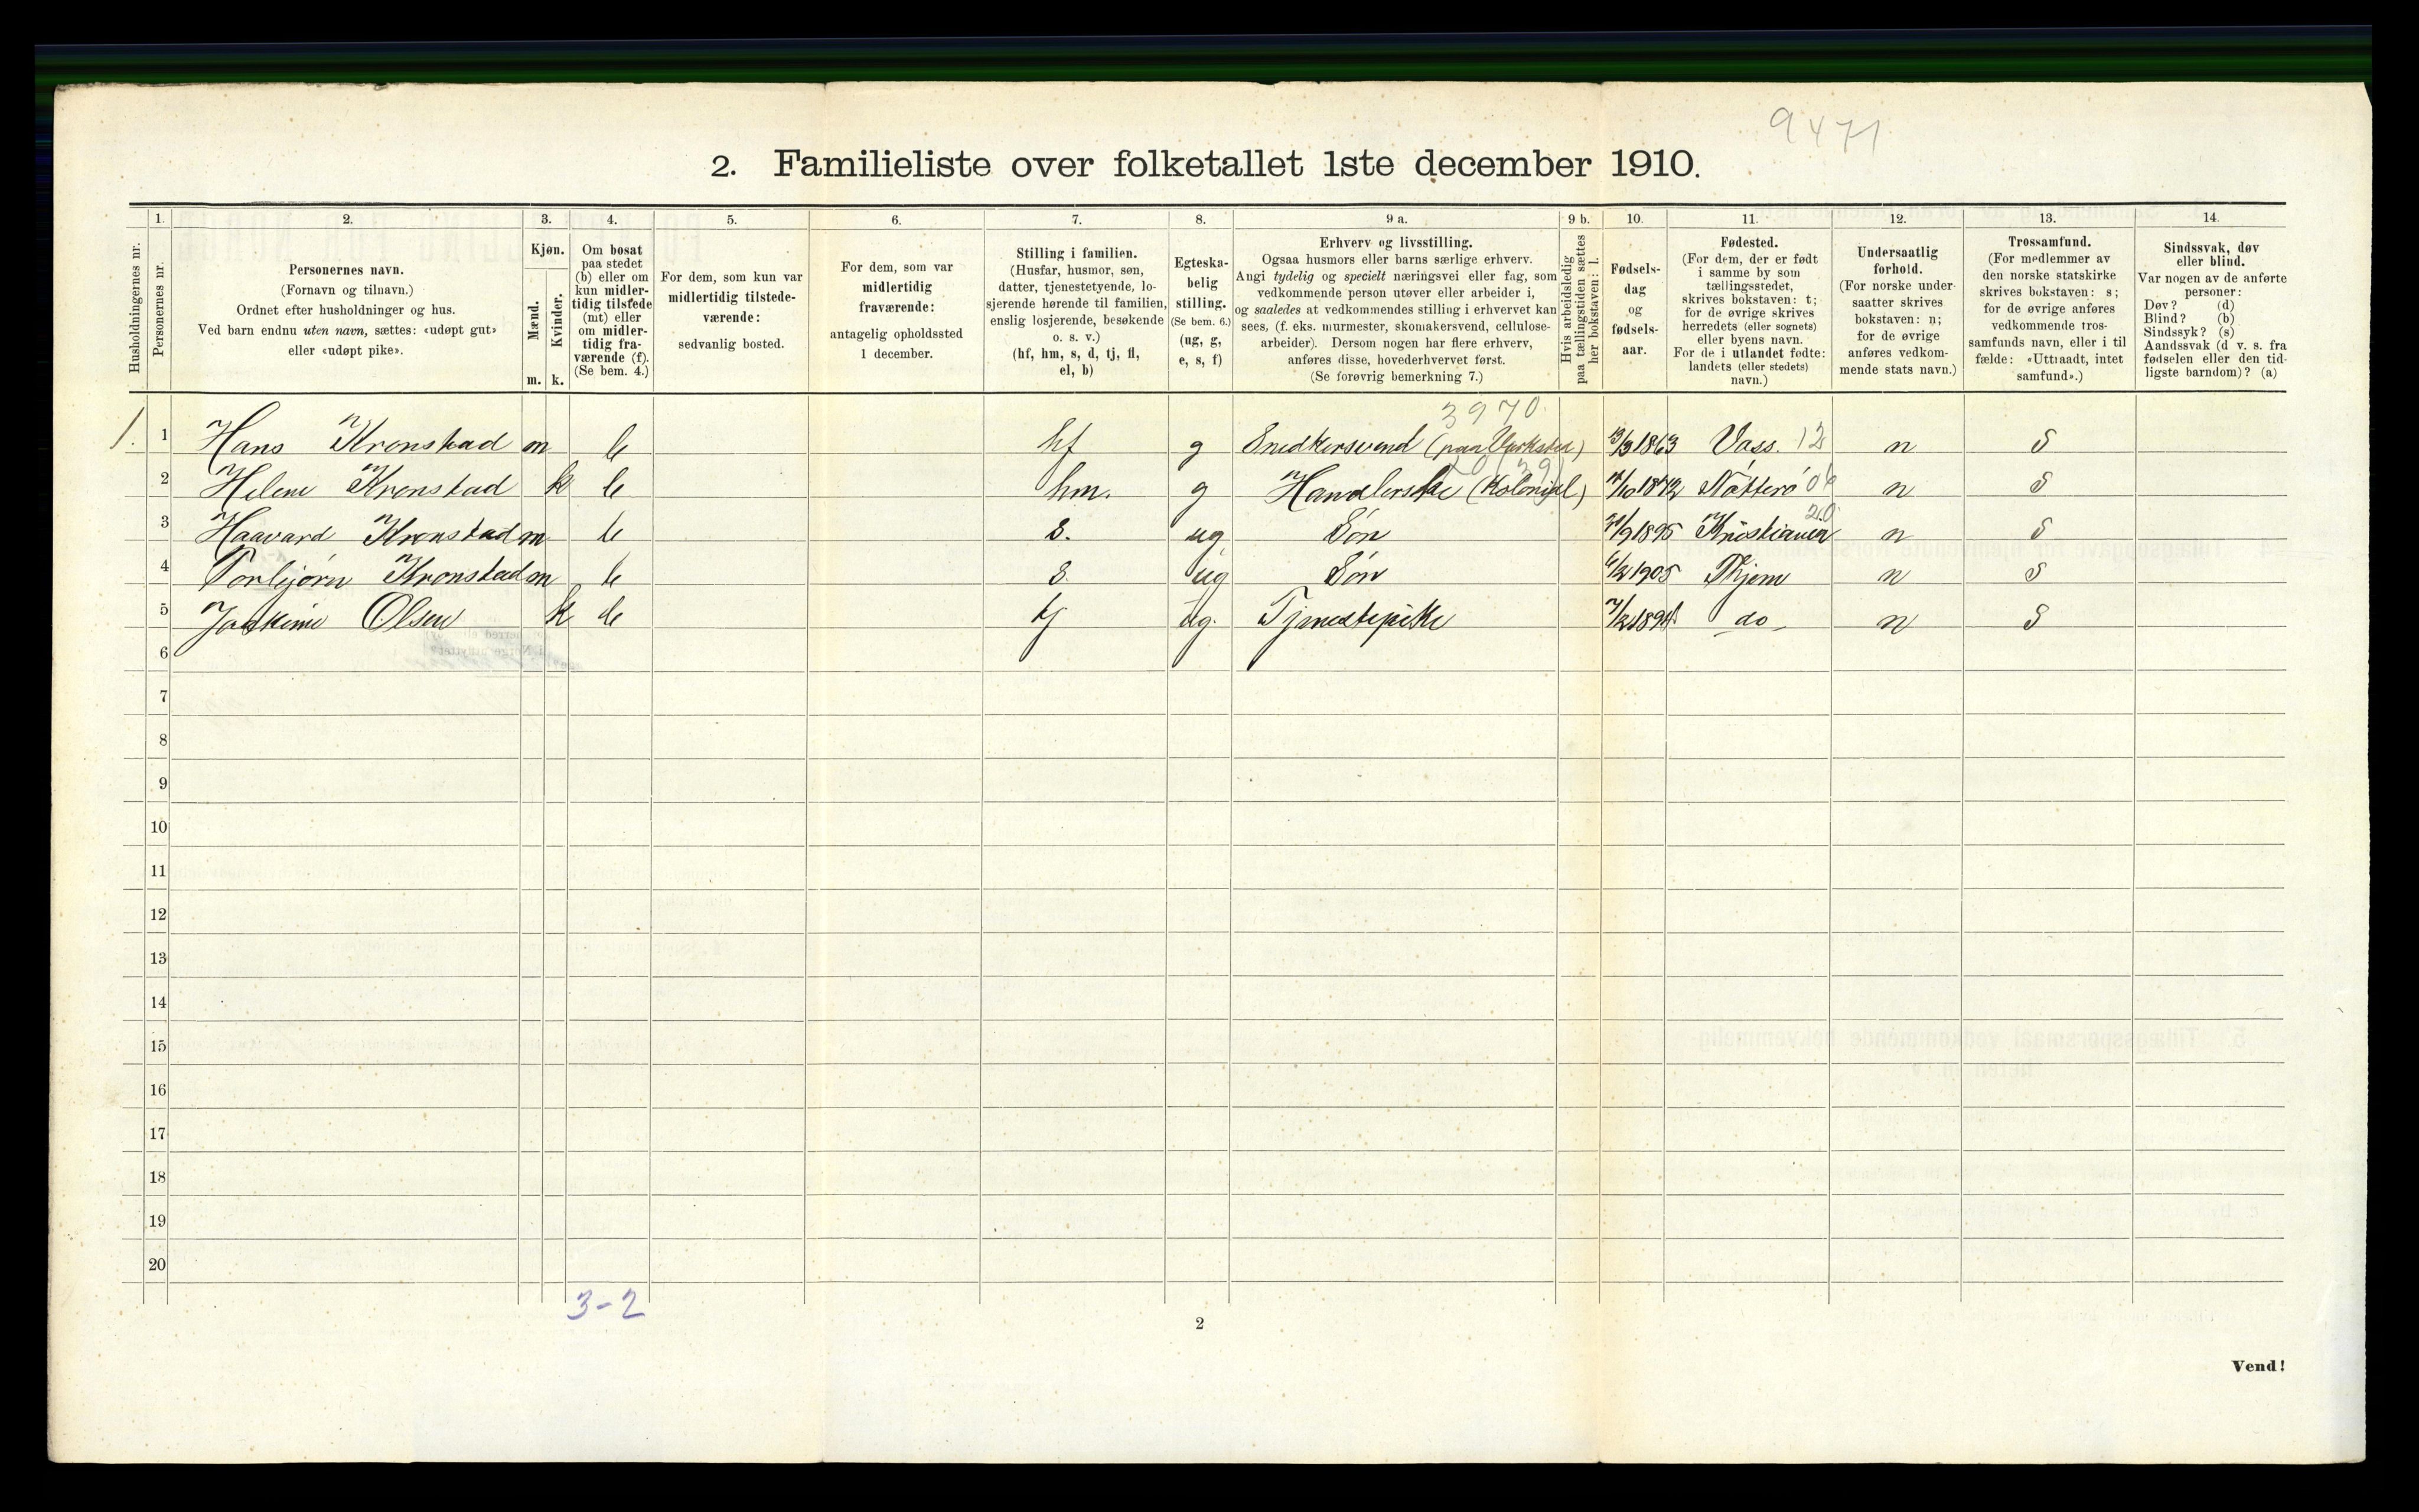 9471
2. Familieliste over folketallet 1ste december 1910.
Husholdningernes nr.
1.
Personernes nr.
2.
Personernes navn.
(Fornavn og tilnavn.)
Ordnet efter husholdninger og hus.
Ved barn endnu uten navn, sættes: «udøpt gut»
eller «udøpt pike».
3.
Kjøn.
Mænd.
Kvinder.
m. k.
4.
Om bosat
paa stedet
(b) eller om
kun midler-
tidig tilstede
(mt) eller
om midler-
tidig fra-
værende (f).
(Se bem. 4.)
5.
For dem, som kun var
midlertidig tilstede-
værende:
sedvanlig bosted.
6.
For dem, som var
midlertidig
fraværende:
antagelig opholdssted
1 december.
7.
Stilling i familien.
(Husfar, husmor, søn,
datter, tjenestetyende, lo-
sjerende hørende til familien,
enslig losjerende, besøkende
o. s. v.)
(hf, hm, s, d, tj, fl,
el, b)
8.
Egteska-
belig
stilling.
(Se bem. 6.)
(ug, g,
e, s, f)
9 a.
Erhverv og livsstilling.
Ogsaa husmors eller barns særlige erhverv.
Angi tydelig og specielt næringsvei eller fag, som
vedkommende person utøver eller arbeider i,
og saaledes at vedkommendes stilling i erhvervet kan
sees, (f. eks. murmester, skomakersvend, cellulose-
arbeider). Dersom nogen har flere erhverv,
anføres disse, hovederhvervet først.
(Se forøvrig bemerkning 7.)
9 b.
Hvis arbeidsledig
paa tællingstiden sættes
her bokstaven: l.
10.
Fødsels-
dag
og
fødsels-
aar.
11.
Fødested.
(For dem, der er født
i samme by som
tællingsstedet,
skrives bokstaven: t;
for de øvrige skrives
herredets (eller sognets)
eller byens navn.
For de i utlandet fødte:
landets (eller stedets)
navn.)
12.
Undersaatlig
forhold.
(For norske under-
saatter skrives
bokstaven: n;
for de øvrige
anføres vedkom-
mende stats navn.)
13.
Trossamfund.
(For medlemmer av
den norske statskirke
skrives bokstaven: s;
for de øvrige anføres
vedkommende tros-
samfunds navn, eller i til-
fælde: «Uttraadt, intet
samfund».)
14.
Sindssvak, døv
eller blind.
Var nogen av de anførte
personer:
Døv? (d)
Blind? (b)
Sindssyk? (s)
Aandssvak (d. v. s. fra
fødselen eller den tid-
ligste barndom)? (a)
3970.
1. 1 Hans Kronstad m b hf g Snedkersvend (paa Verksted) 13/3 1863 Voss. 12 n S
2 Helene Kronstad k b hm. g Handlerske (Kolonial) Nøtterø 06 n S
20
3 Haavard Kronstad m b s. ug Søn 1895 Kristiania n S
4 Torbjørn Kronstad m b s. ug Søn 6/2 1905 Tjøm n S
5 Jokkime Olsen k b tj ug. Tjenestepike do n S
6
7
8
9
10
11
12
13
14
15
16
17
18
19
20
3-2
2
Vend!